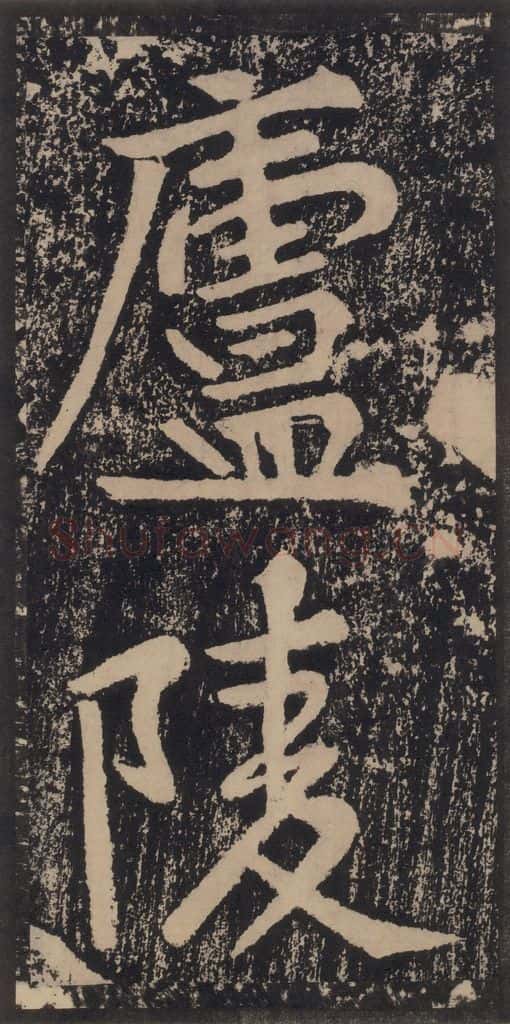 廬陵
Shufawang.CN